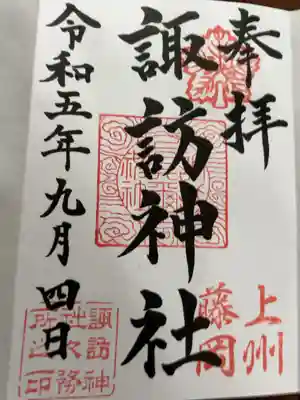 奉拝
上州
藤岡
諏訪神社
令和五年九月四日
諏訪神
社社務
所之印